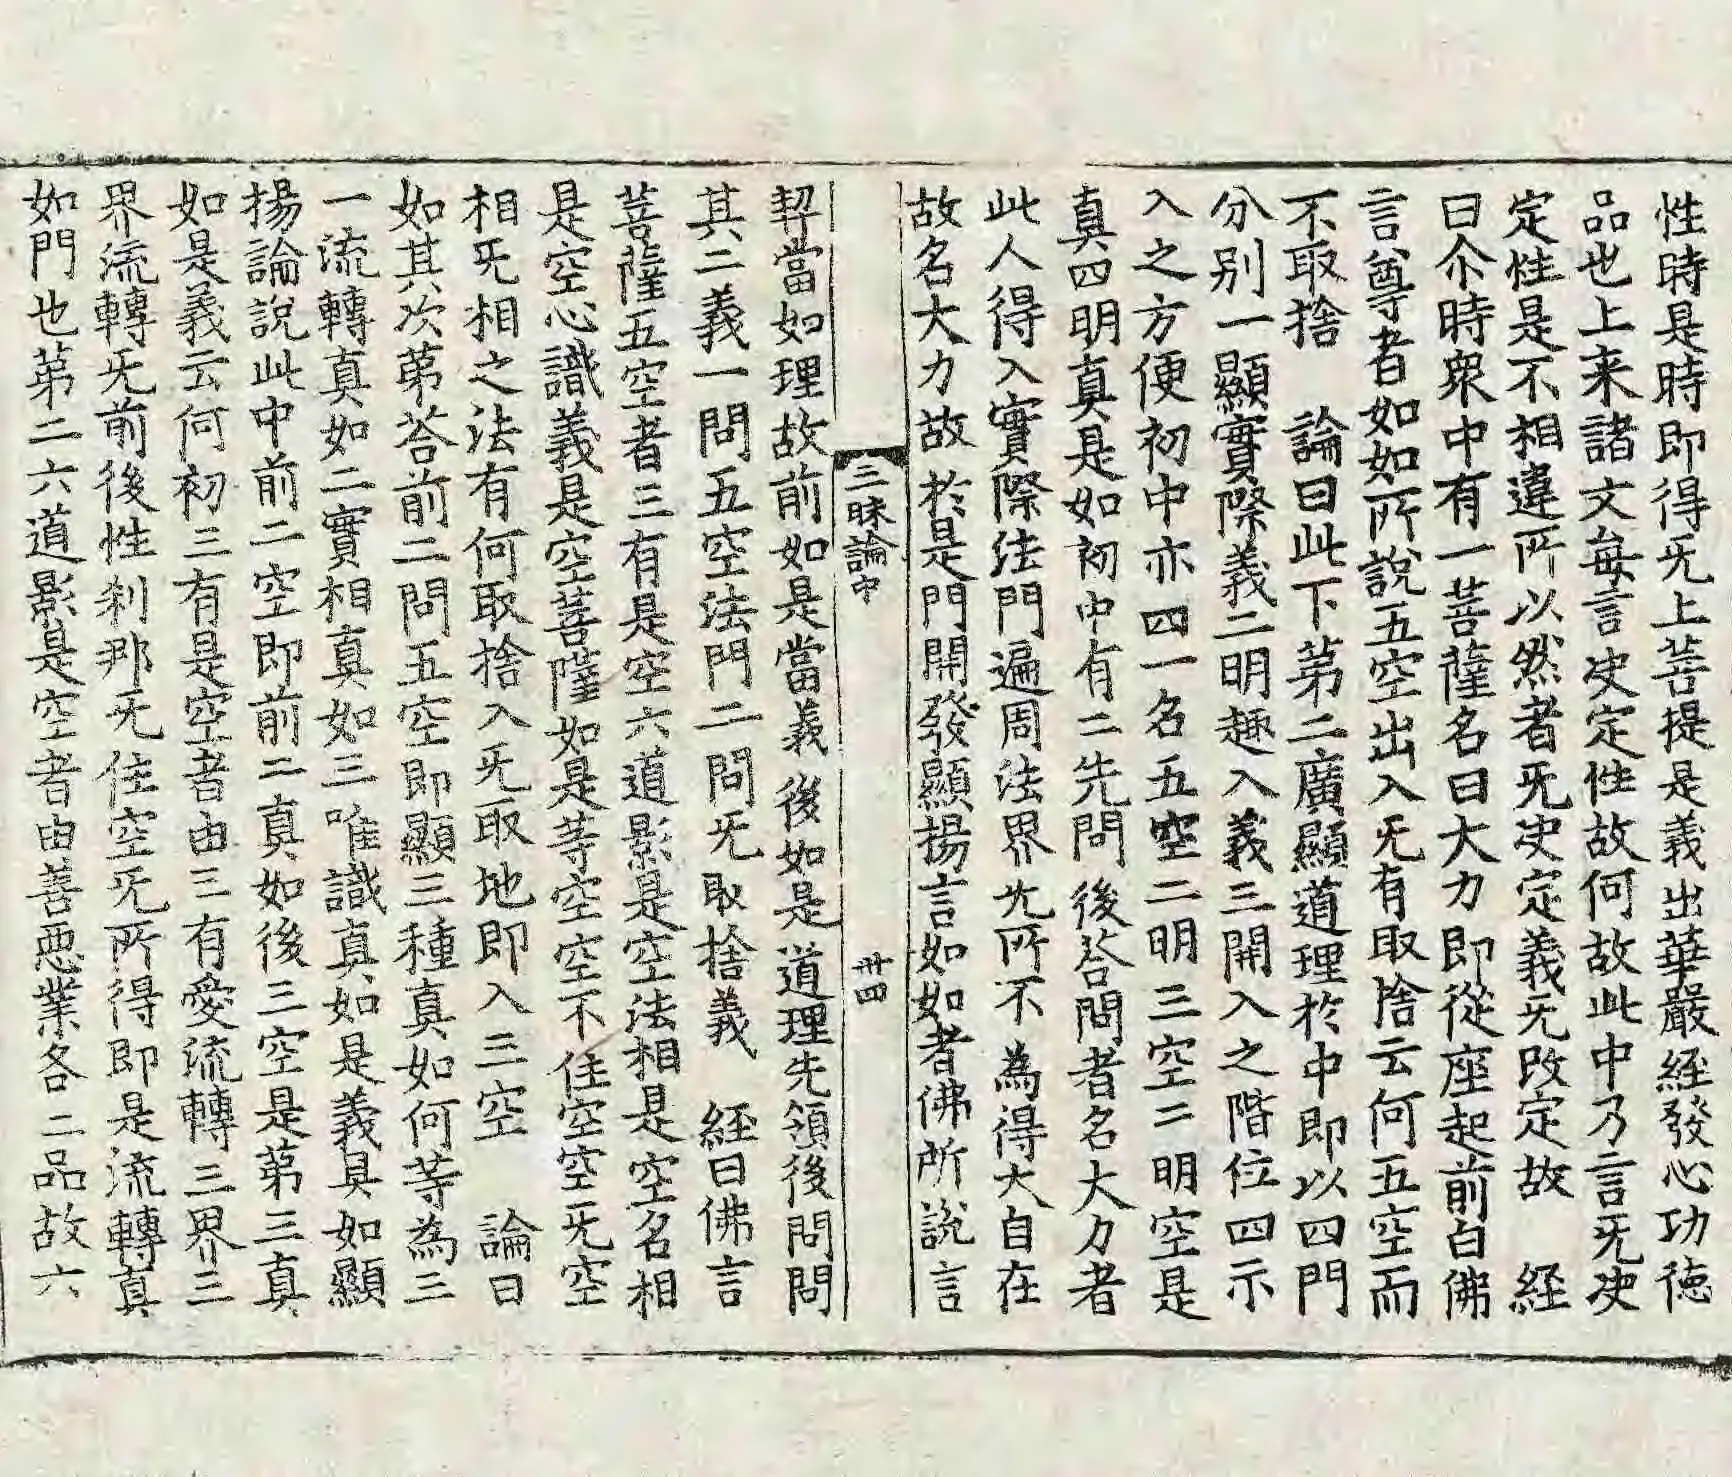 性時是時即得旡上菩提是義出華嚴経發心功徳
品也上来諸文每言决定性故何故此中乃言旡决
定性是不相違所以然者旡决定義旡改定故　経
曰尒時衆中有一菩薩名曰大力即從座起前白佛
言尊者如如所說五空出入旡有取捨云何五空而
不取捨　論曰此下第二廣顯道理於中即以四門
分别一顯實際義二明趣入義三開入之階位四示
入之方便初中亦四一名五空二明三空二明空是
真四明真是如初中有二先問後荅問者名大力者
此人得入實際法門遍周法界旡所不為得大自在
故名大力故於是門開發顯揚言如如者佛所說言
三昧論中
卅四
契當如理故前如是當義後如是道理先領後問問
其二義一問五空法門二問旡取捨義　経曰佛言
菩薩五空者三有是空六道影是空法相是空名相
是空心識義是空菩薩如是等空空不住空空旡空
相旡相之法有何取捨入旡取地即入三空　論曰
如其次第荅前二問五空即顯三種真如何等為三
一流轉真如二實相真如三唯識真如是義具如顯
揚論說此中前二空即前二真如後三空是第三真
如是義云何初三有是空者由三有愛流轉三界三
界流轉旡前後性刹那旡住空旡所得即是流轉真
如門也第二六道影是空者由善惡業各二品故六